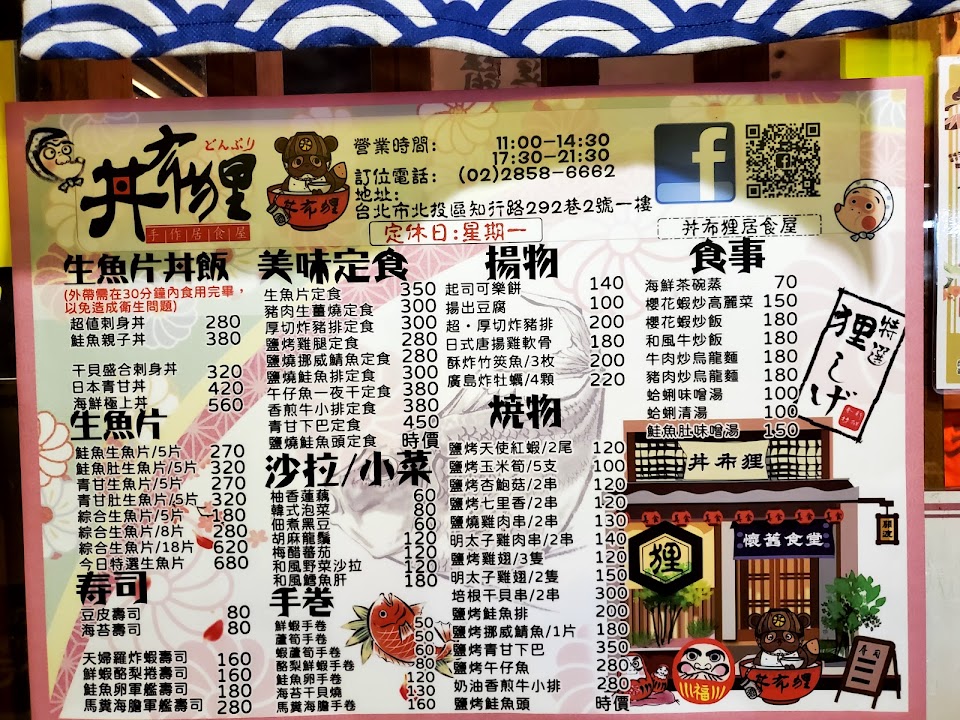 丼布狸
どんぶり
手作居食屋
丼布狸
營業時間: 11:00-14:30
17:30-21:30
訂位電話: (02)2858-6662
地址:
台北市北投區知行路292巷2號一樓
定休日:星期一
f
丼布狸居食屋
生魚片丼飯
(外帶需在30分鐘內食用完畢,
以免造成衛生問題)
超值刺身丼 280
鮭魚親子丼 380
干貝盛合刺身丼 320
日本青甘丼 420
海鮮極上丼 560
生魚片
鮭魚生魚片/5片 270
鮭魚肚生魚片/5片 320
青甘生魚片/5片 270
青甘肚生魚片/5片 320
綜合生魚片/5片 180
綜合生魚片/8片 280
綜合生魚片/18片 620
今日特選生魚片 680
寿司
豆皮壽司 80
海苔壽司 80
天婦羅炸蝦壽司 160
鮮蝦酪梨捲壽司 160
鮭魚卵軍艦壽司 180
馬糞海膽軍艦壽司 280
美味定食
生魚片定食 350
豬肉生薑燒定食 300
厚切炸豬排定食 300
鹽烤雞腿定食 280
鹽燒挪威鯖魚定食 280
鹽燒鮭魚排定食 300
午仔魚一夜干定食 380
香煎牛小排定食 380
青甘下巴定食 450
鹽燒鮭魚頭定食 時價
沙拉/小菜
柚香蓮藕 60
韓式泡菜 80
佃煮黑豆 60
胡麻龍鬚 120
梅醋蕃茄 120
和風野菜沙拉 120
和風鱈魚肝 180
手巻
鮮蝦手卷 50
蘆筍手卷 50
蝦蘆筍手卷 60
酪梨鮮蝦手卷 80
鮭魚卵手卷 120
海苔干貝燒 130
馬糞海膽手卷 160
揚物
起司可樂餅 140
揚出豆腐 100
超・厚切炸豬排 200
日式唐揚雞軟骨 180
酥炸竹筴魚/3枚 200
廣島炸牡蠣/4顆 220
燒物
鹽烤天使紅蝦/2尾 120
鹽烤玉米筍/5支 100
鹽烤杏鮑菇/2串 120
鹽烤七里香/2串 120
鹽燒雞肉串/2串 130
明太子雞肉串/2串 140
鹽烤雞翅/3隻 120
明太子雞翅/2隻 150
培根干貝串/2串 300
鹽烤鮭魚排 200
鹽烤挪威鯖魚/1片 180
鹽烤青甘下巴 350
鹽烤午仔魚 280
奶油香煎牛小排 280
鹽烤鮭魚頭 時價
食事
海鮮茶碗蒸 70
櫻花蝦炒高麗菜 150
櫻花蝦炒飯 180
和風牛炒飯 180
牛肉炒烏龍麵 180
豬肉炒烏龍麵 180
蛤蜊味噌湯 100
蛤蜊清湯 100
鮭魚肚味噌湯 150
特選
狸しげ
丼布狸
懷舊食堂
狸
福
丼布狸
寿司